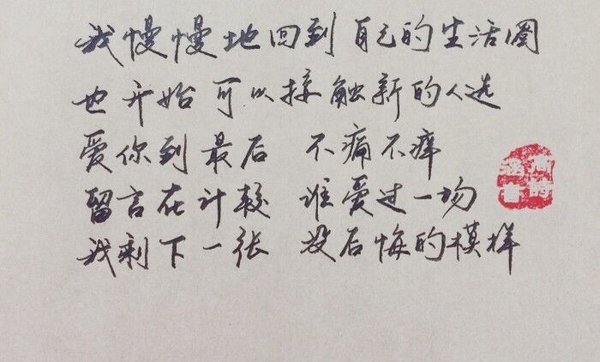 我慢慢地回到自己的生活圈
也开始可以接触新的人选
爱你到最后 不痛不痒
留言在计较 谁爱过一场
我剩下一张 没后悔的模样